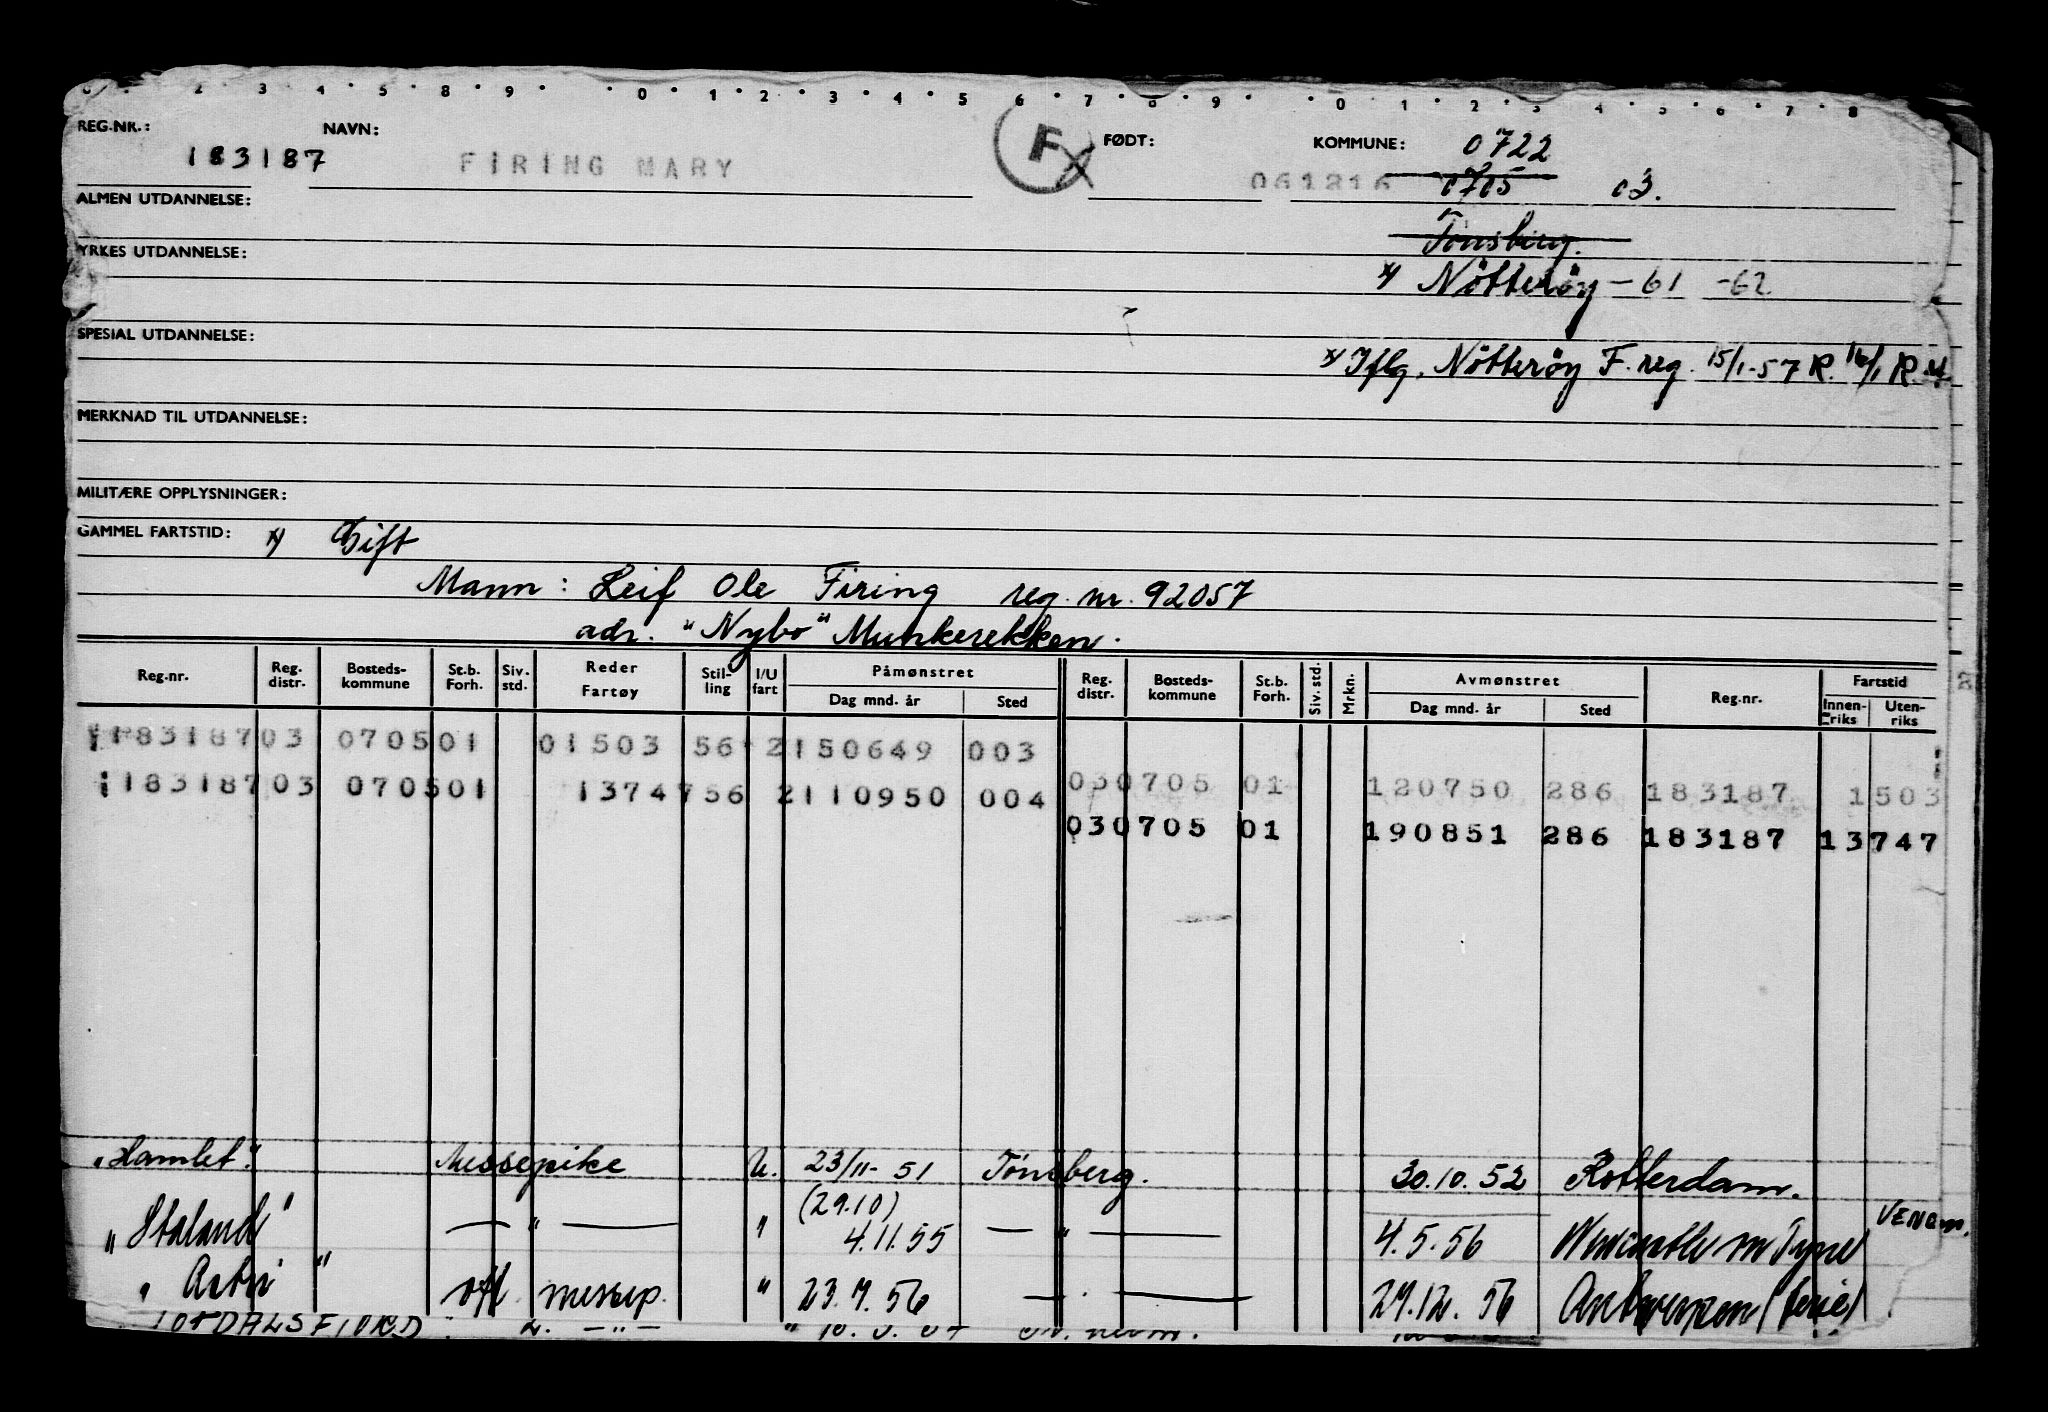 2 3 4 5 8 9 0 1 2 3 4 5 6 7 8 9 0 1 2 3 4 5 6 5 7 8
REG.NR.: NAVN: F FØDT: KOMMUNE: 0722
183187 FIRING MARY 061216 0705 03.
ALMEN UTDANNELSE:
Tønsberg.
YRKES UTDANNELSE:
x) Nötteröy - 61 - 62
SPESIAL UTDANNELSE:
x) Iflg. Nötterøy F. reg. 15/1-57 R. 16/1 R.
MERKNAD TIL UTDANNELSE:
MILITÆRE OPPLYSNINGER:
GAMMEL FARTSTID: x) Gift
Mann: Leif Ole Firing reg. nr. 92057
adr. "Nybo" Munkerekken.
Reg.nr. Reg. distr. Bosteds-kommune St.b. Forh. Siv. std. Reder Fartøy Stil-ling I/U fart Påmønstret Reg. distr. Bosteds-kommune St.b. Forh. Siv. std. Mrkn. Avmønstret Reg.nr. Fartstid
Dag mnd. år Sted Dag mnd. år Sted Innen-riks Uten-riks
183187 03 0705 01 01503 56 2 150649 003
183187 03 0705 01 13747 56 2 110950 004 03 0705 01 120750 286 183187 1503
03 0705 01 190851 286 183187 13747
"Hamlet" Messepike U. 23/11-51 Tönsberg. 30.10.52 Rotterdam.
(29.10)
"Staland" — " — " 4.11.55 — " — 4.5.56 Newcastle on Tyne
"Astri" off messep. " 23.7.56 — " — 29.12.56 Antwerpen (ferie)
TORDALSFJORD